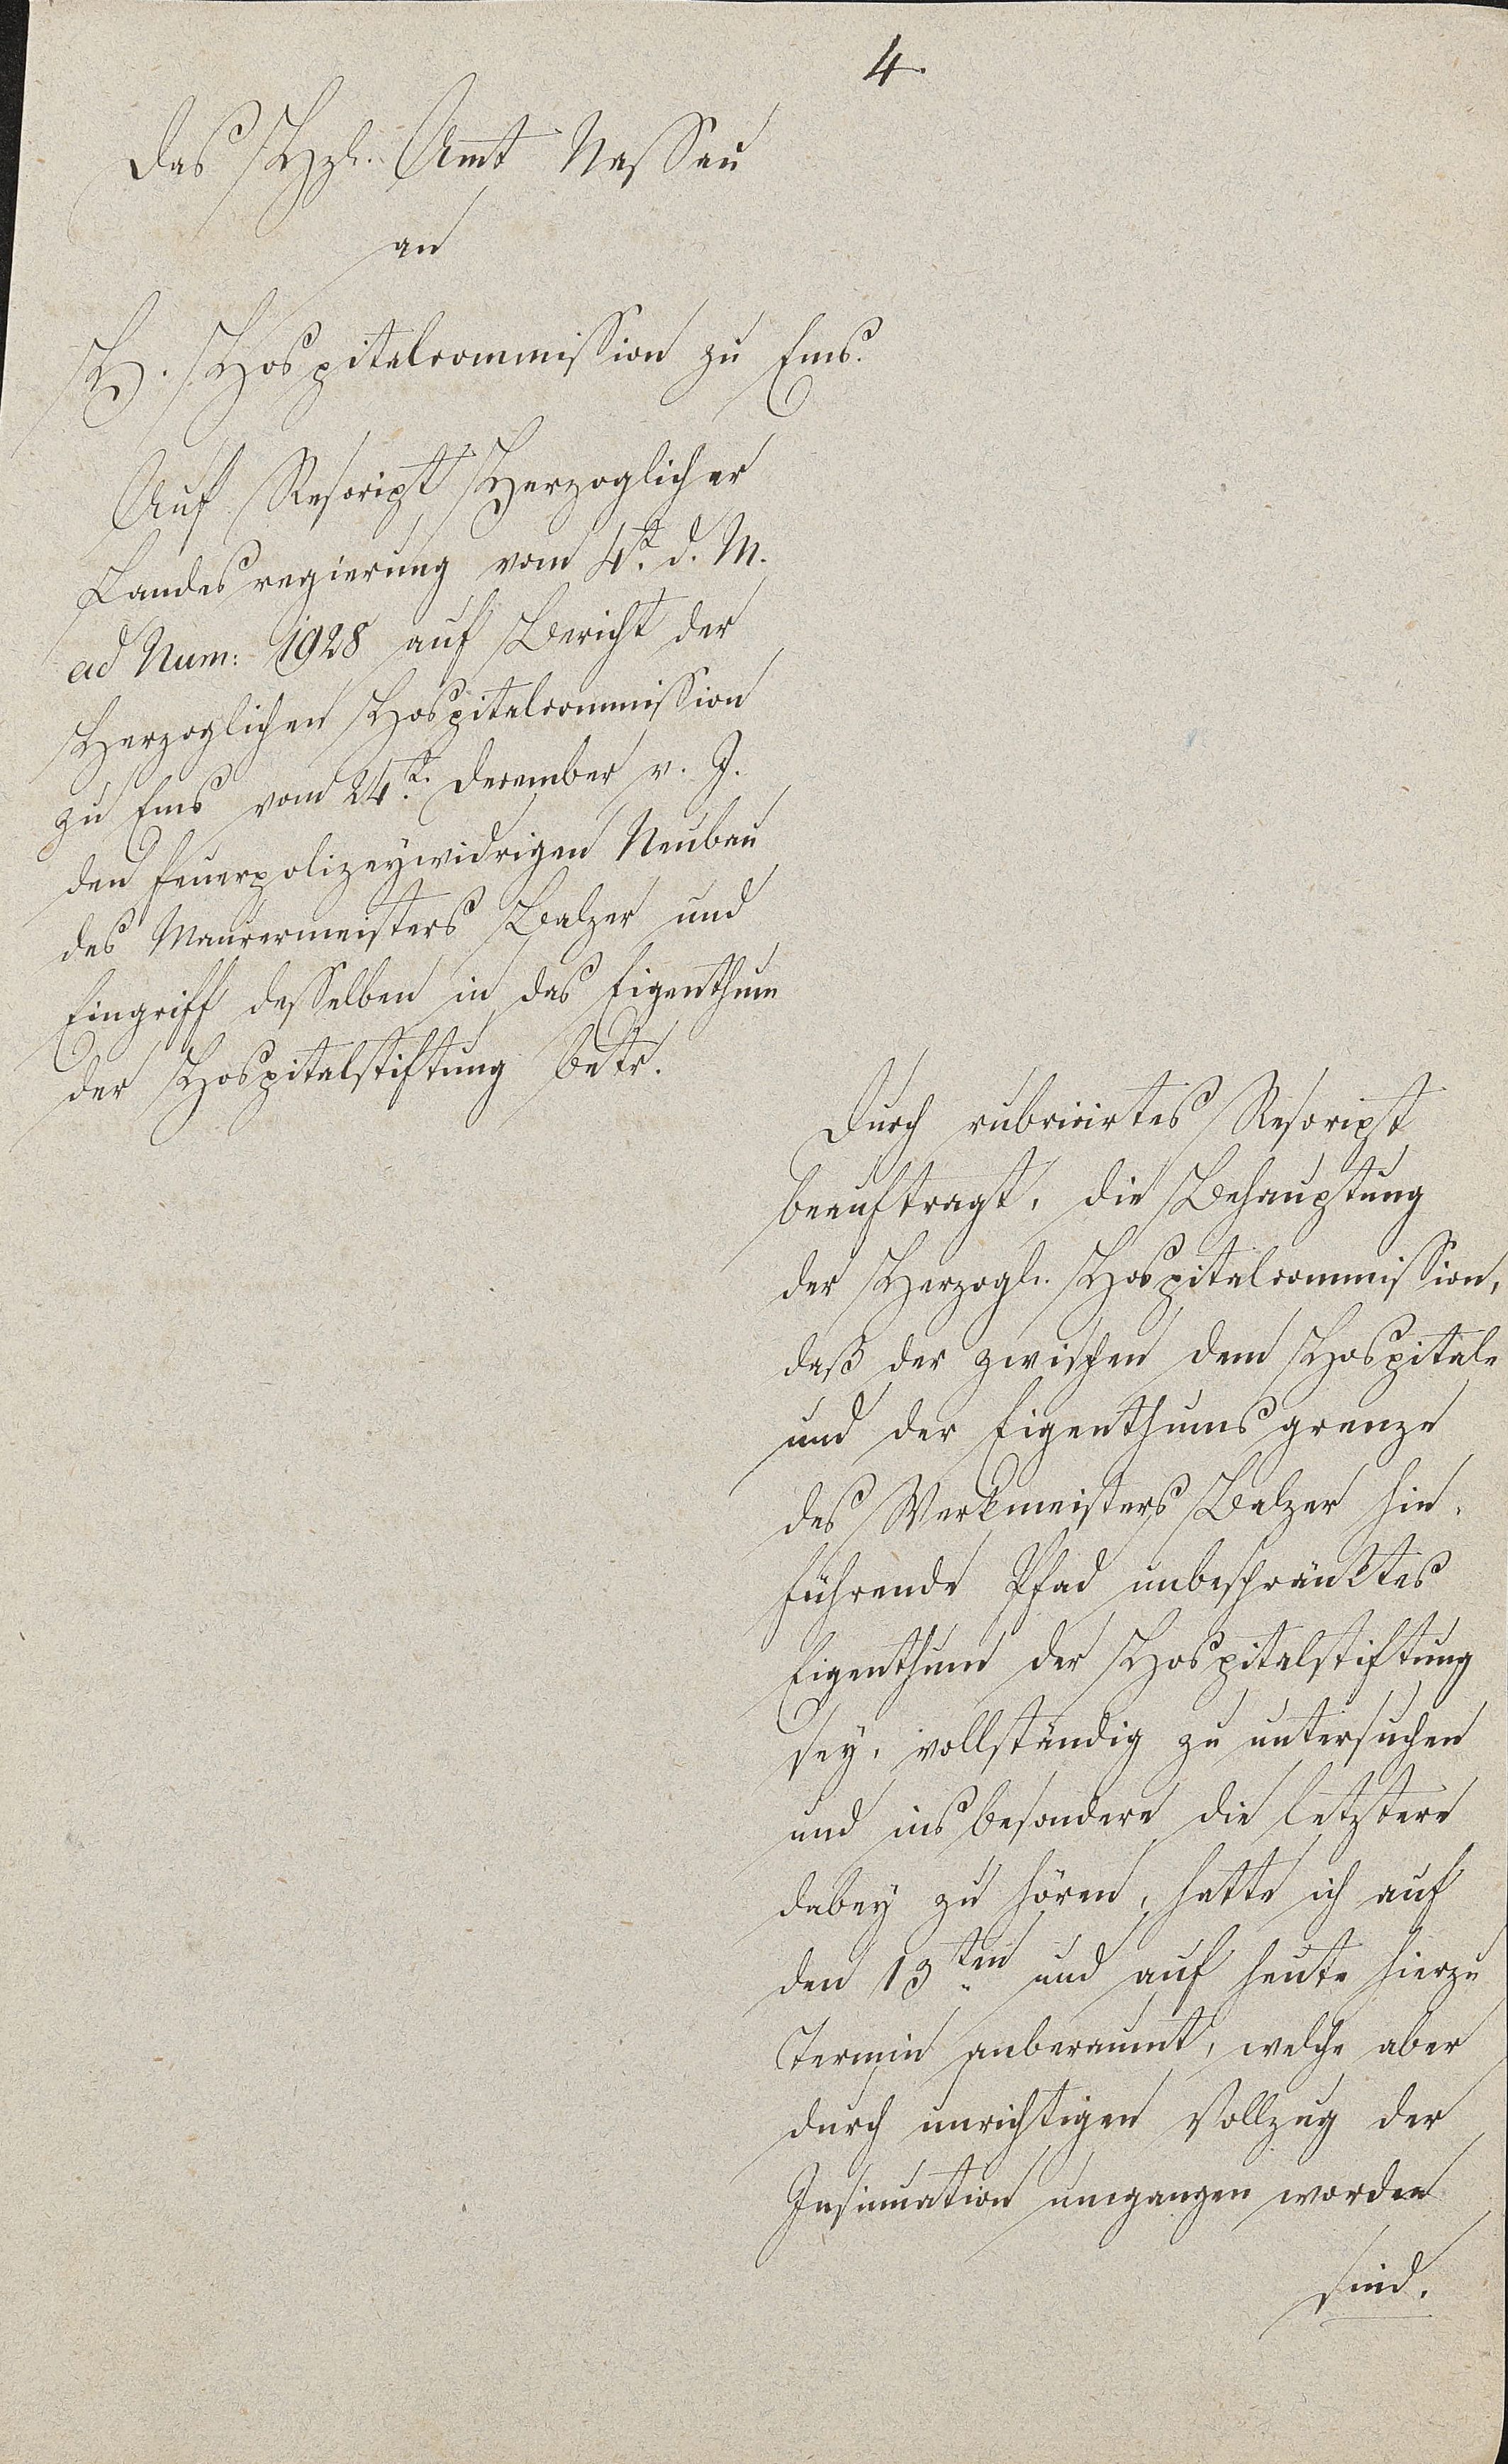 4.
Das Hzl. Amt Nassau
an
H. Hospitalcommission zu Ems.
Auf Rescript Herzoglicher
Landesregierung vom 4t. d. M.
ad Num: 1928 auf Bericht der
Herzoglichen Hospitalcommission
zu Ems vom 24t. December v. J.
den feuerpolizeywidrigen Neubau
des Maurermeisters Balzer und
Eingriff desselben in das Eigenthum
der Hospitalstiftung betr.
Durch rubricirtes Rescript
beauftragt, die Behauptung
der Herzogl. Hospitalcommission,
daß der zwischen dem Hospitale
und der Eigenthumsgrenze
des Werkmeisters Balzer hin-
führende Pfad unbeschränktes
Eigenthum der Hospitalstiftung
sey, vollständig zu untersuchen
und insbesondere die letztere
dabey zu hören, hatte ich auf
den 13ten und auf heute hierzu
Termin anberaumt, welche aber
durch unrichtigen Vollzug der
Insinuation umgangen worden
sind.